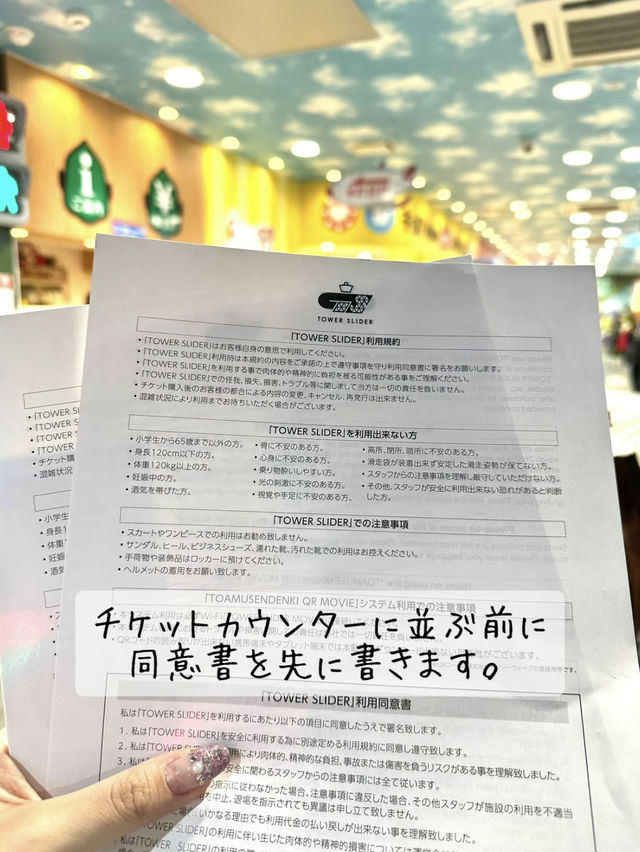 TOWER SLIDER
「TOWER SLIDER」利用規約
・「TOWER SLIDER」はお客様自身の意思で利用してください。
・「TOWER SLIDER」利用時は本規約の内容をご承諾の上で遵守事項を守り利用同意書に署名をお願いします。
・「TOWER SLIDER」を利用する事で肉体的や精神的に負担を被る可能性がある事をご理解ください。
・「TOWER SLIDER」での怪我、損失、損害、トラブル等に関しまして当方は一切の責任を負いません。
・チケット購入後のお客様の都合による内容の変更、キャンセル、再発行は出来ません。
・混雑状況により利用までお待ちいただく場合がございます。
「TOWER SLIDER」を利用出来ない方
・小学生から65歳まで以外の方。
・身長120cm以下の方。
・体重120kg以上の方。
・妊娠中の方。
・酒気を帯びた方。
・骨に不安のある方。
・心身に不安のある方。
・乗り物酔いしやすい方。
・光の刺激に不安のある方。
・視覚や手足に不安のある方。
・高所、閉所、暗所に不安のある方。
・滑走袋が装着出来ず安定した滑走姿勢が保てない方。
・スタッフからの注意事項を理解し厳守していただけない方。
・その他、スタッフが安全に利用出来ない恐れがあると判断
した方。
「TOWER SLIDER」での注意事項
・スカートやワンピースでの利用はお勧め致しません。
・サンダル、ヒール、ビジネスシューズ、濡れた靴、汚れた靴での利用はお控えください。
・手荷物や装飾品はロッカーに預けてください。
・ヘルメットの着用をお願い致します。
「TOAMUSENDENKI QR MOVIE」システム利用での注意事項
チケットカウンターに並ぶ前に
同意書を先に書きます。
「TOWER SLIDER」利用同意書
私は「TOWER SLIDER」を利用するにあたり以下の項目に同意したうえで署名致します。
1. 私は「TOWER SLIDER」を安全に利用する為に別途定める利用規約に同意し遵守致します。
2. 私は「TOWER SLIDER」の利用により肉体的、精神的な負担、事故または傷害を負うリスクがある事を理解致しました。
3. 私は 安全に関わるスタッフからの注意事項には全て従います。
の指示に従わなかった場合、注意事項に違反した場合、その他スタッフが施設の利用を不適当
中止、退場を指示されても異議は申し立て致しません。
いかなる理由でも利用代金の払い戻しが出来ない事を理解致しました。
私は「TOWER SLIDER」の利用に伴い生じた肉体的や精神的損害については